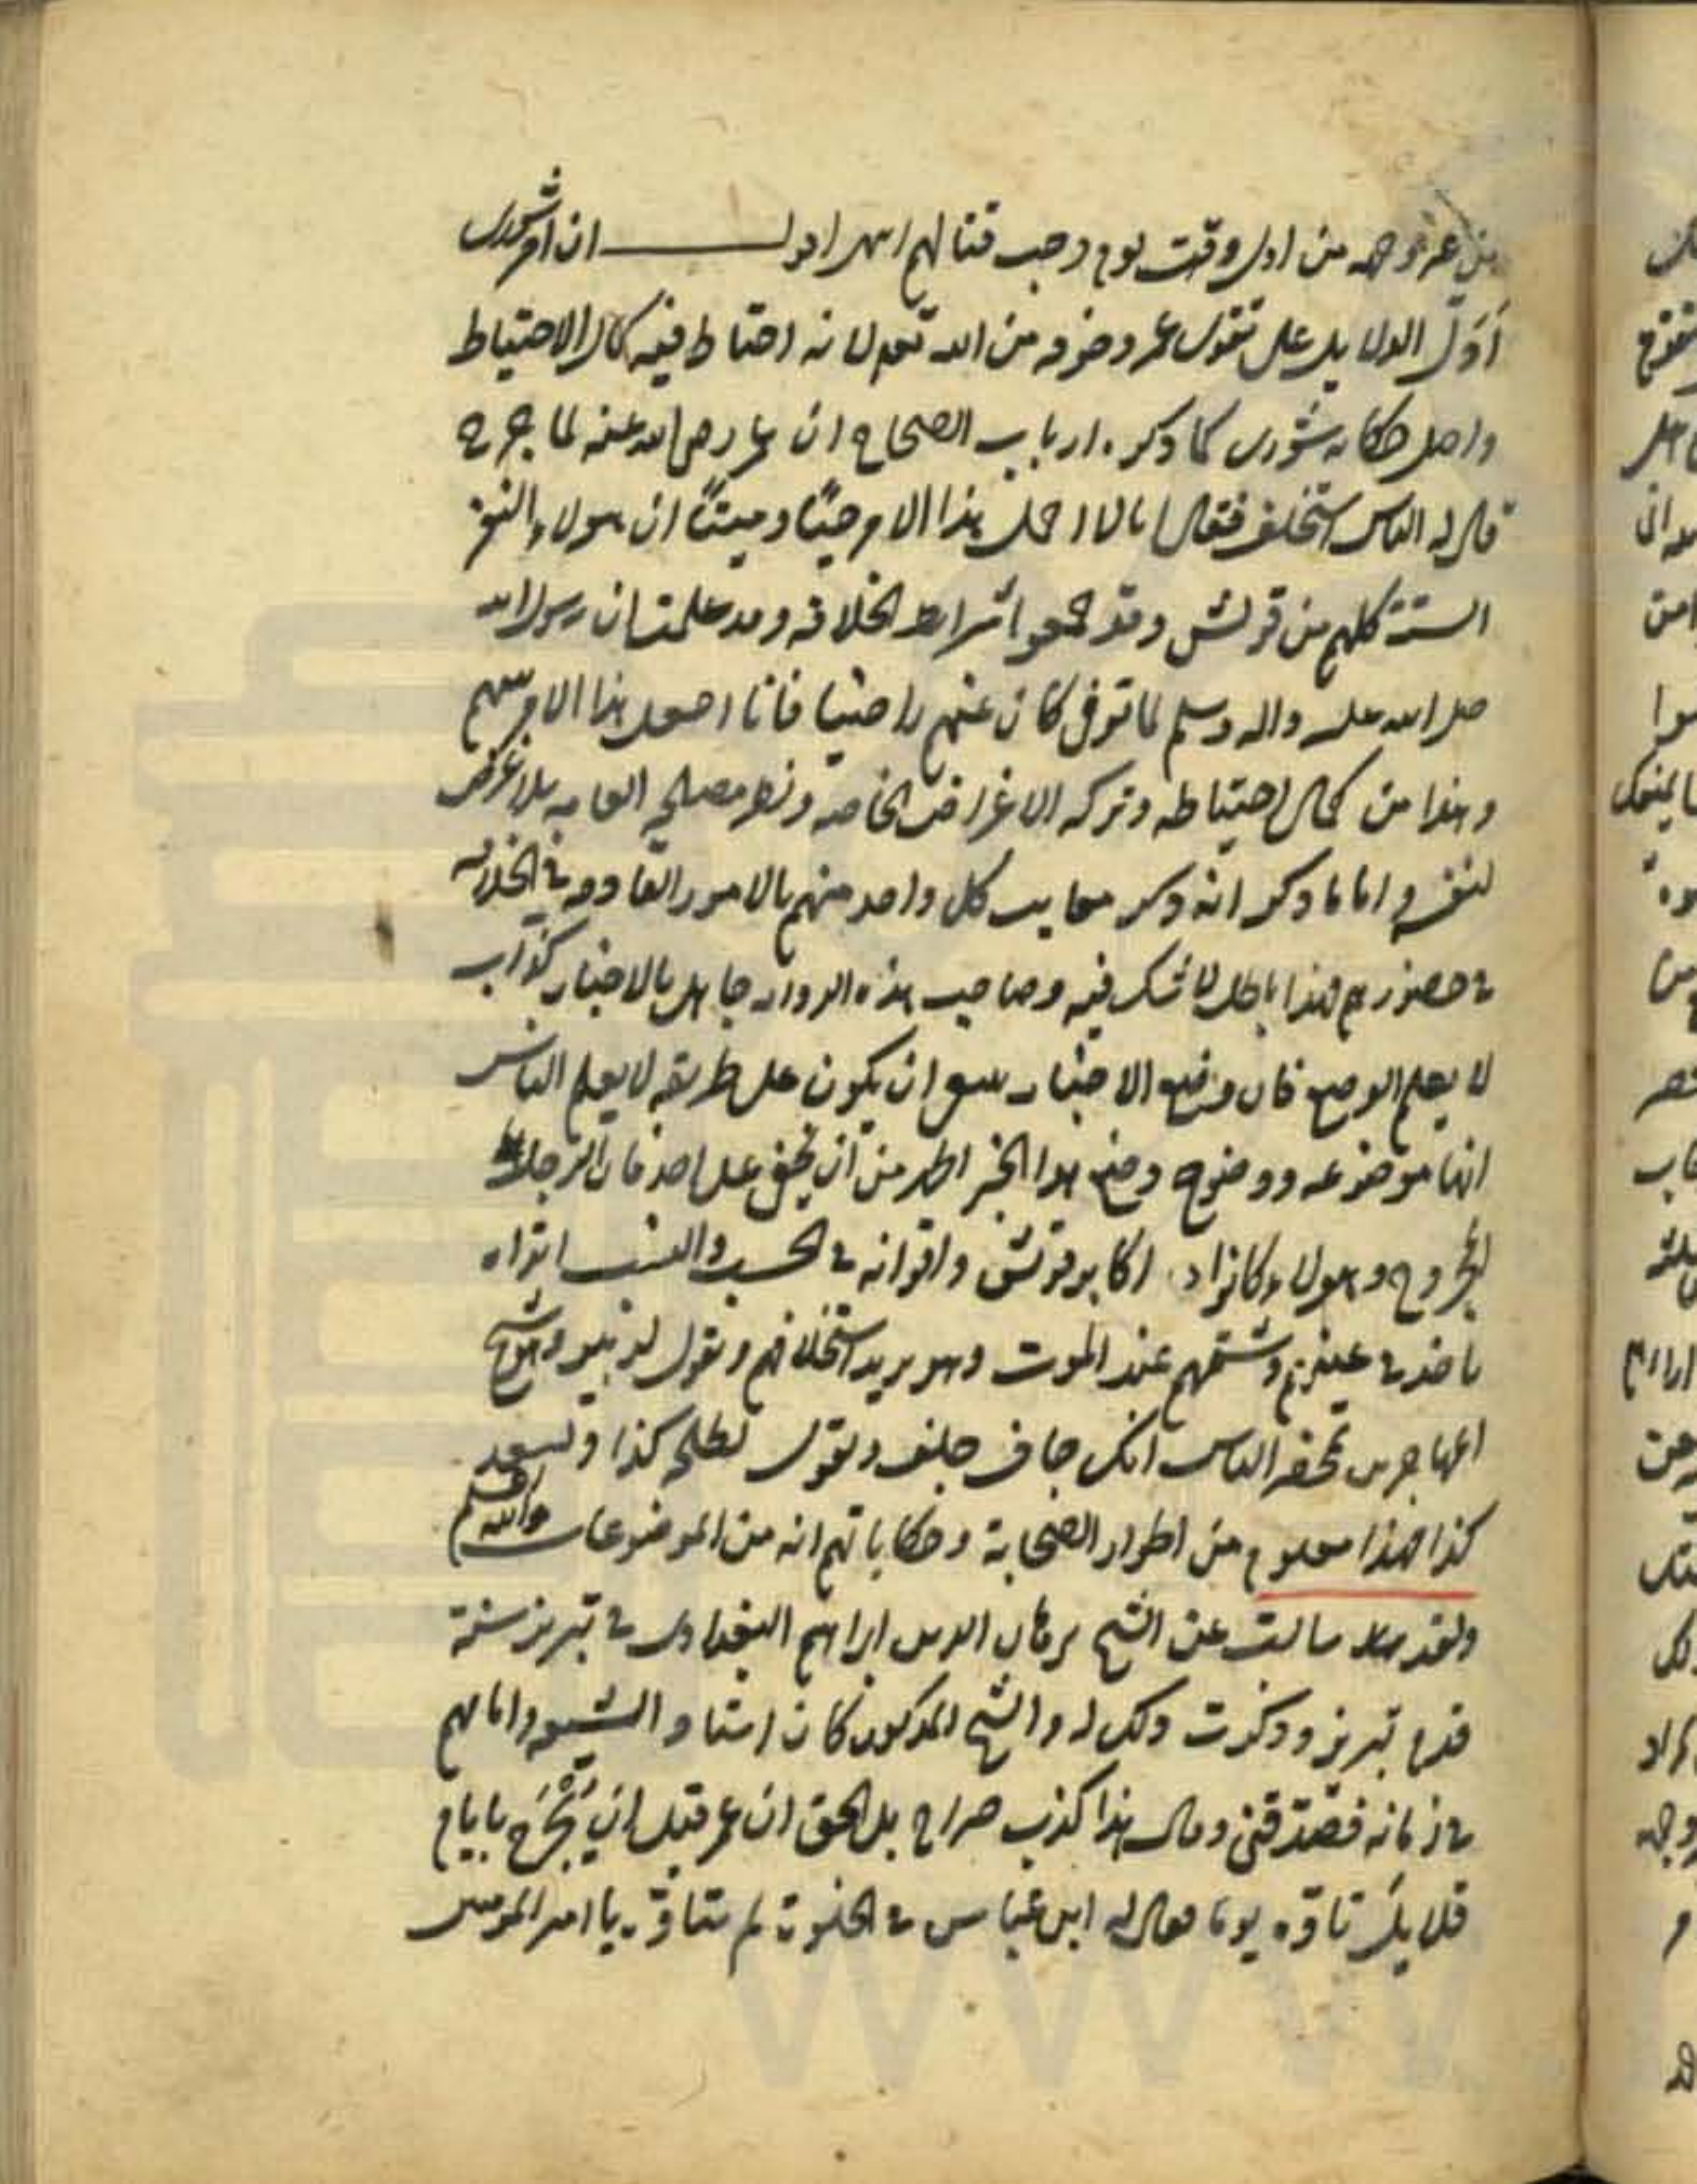 من غير وجه من اول وقت يوم وجب قتالهم انتهى اقول ان امر شورى
أوّل الدلايل على تقوى عمر وخوفه من الله تعالى لانه احتاط فيه كمال الاحتياط
واصل حكاية شورى كما ذكره ارباب الصحاح ان عمر رضي الله عنه لما جرح
قال له الناس استخلف فقال انا لا احمل هذا الامر حيًّا وميتًا ان هولاء النفر
الستة كلهم من قريش وقد جمعوا شرايط الخلافة وقد علمت ان رسول الله
صلى الله عليه واله وسلم لما توفى كان عنهم راضيا فانا اجعل هذا الامر بينهم
وهذا من كمال احتياطه وتركه الاغراض الخاصة ونظر مصلحة العامة بلا غرض
لنفسه واما ما ذكر انه ذكر معايب كل واحد منهم بالامور القادحة في الخلافة
في حضورهم فهذا باطل لا شك فيه وصاحب هذه الرواية جاهل بالاخبار كذّاب
لا يعلم الوضع فان وضع الاخبار ينبغي ان يكون على طريقة لا يعلم الناس
انها موضوعة ووضوح وضع هذا الخبر اظهر من ان يخفى على احد فان الرجل
المجروح وهولاء كانوا اكابر قريش واقرانه في الحسب والنسب اتراه
ياخذ في عيبهم وشتمهم عند الموت وهو يريد استخلافهم ويقول لزبير وهو شيخ
المهاجرين بمحضر الناس انك جاف جلف ويقول لطلحة كذا ولسعد
كذا فهذا معلوم من اطوار الصحابة وحكاياتهم انه من الموضوعات والله اعلم
ولقد سالت عن الشيخ برهان الدين ابراهيم البغدادي في تبريز سنة
قدم تبريز وذكرت ذلك له والشيخ المذكور كان استاد الشيعة وامامهم
في زمانه فصدّقني وقال هذا كذب صراح بل الحق ان عمر قبل ان يُجْرَح بايام
قلايل تاوّه يوما فقال له ابن عباس في الخلوة لم تتاوّه يا امير المومنين